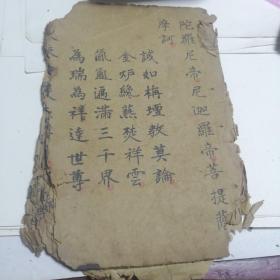 陀羅尼帝尼迦羅帝菩提薩
摩訶
誠如栴壇教莫論
金炉纔爇焚祥雲
氤氳遍滿三千界
為瑞為祥達世尊